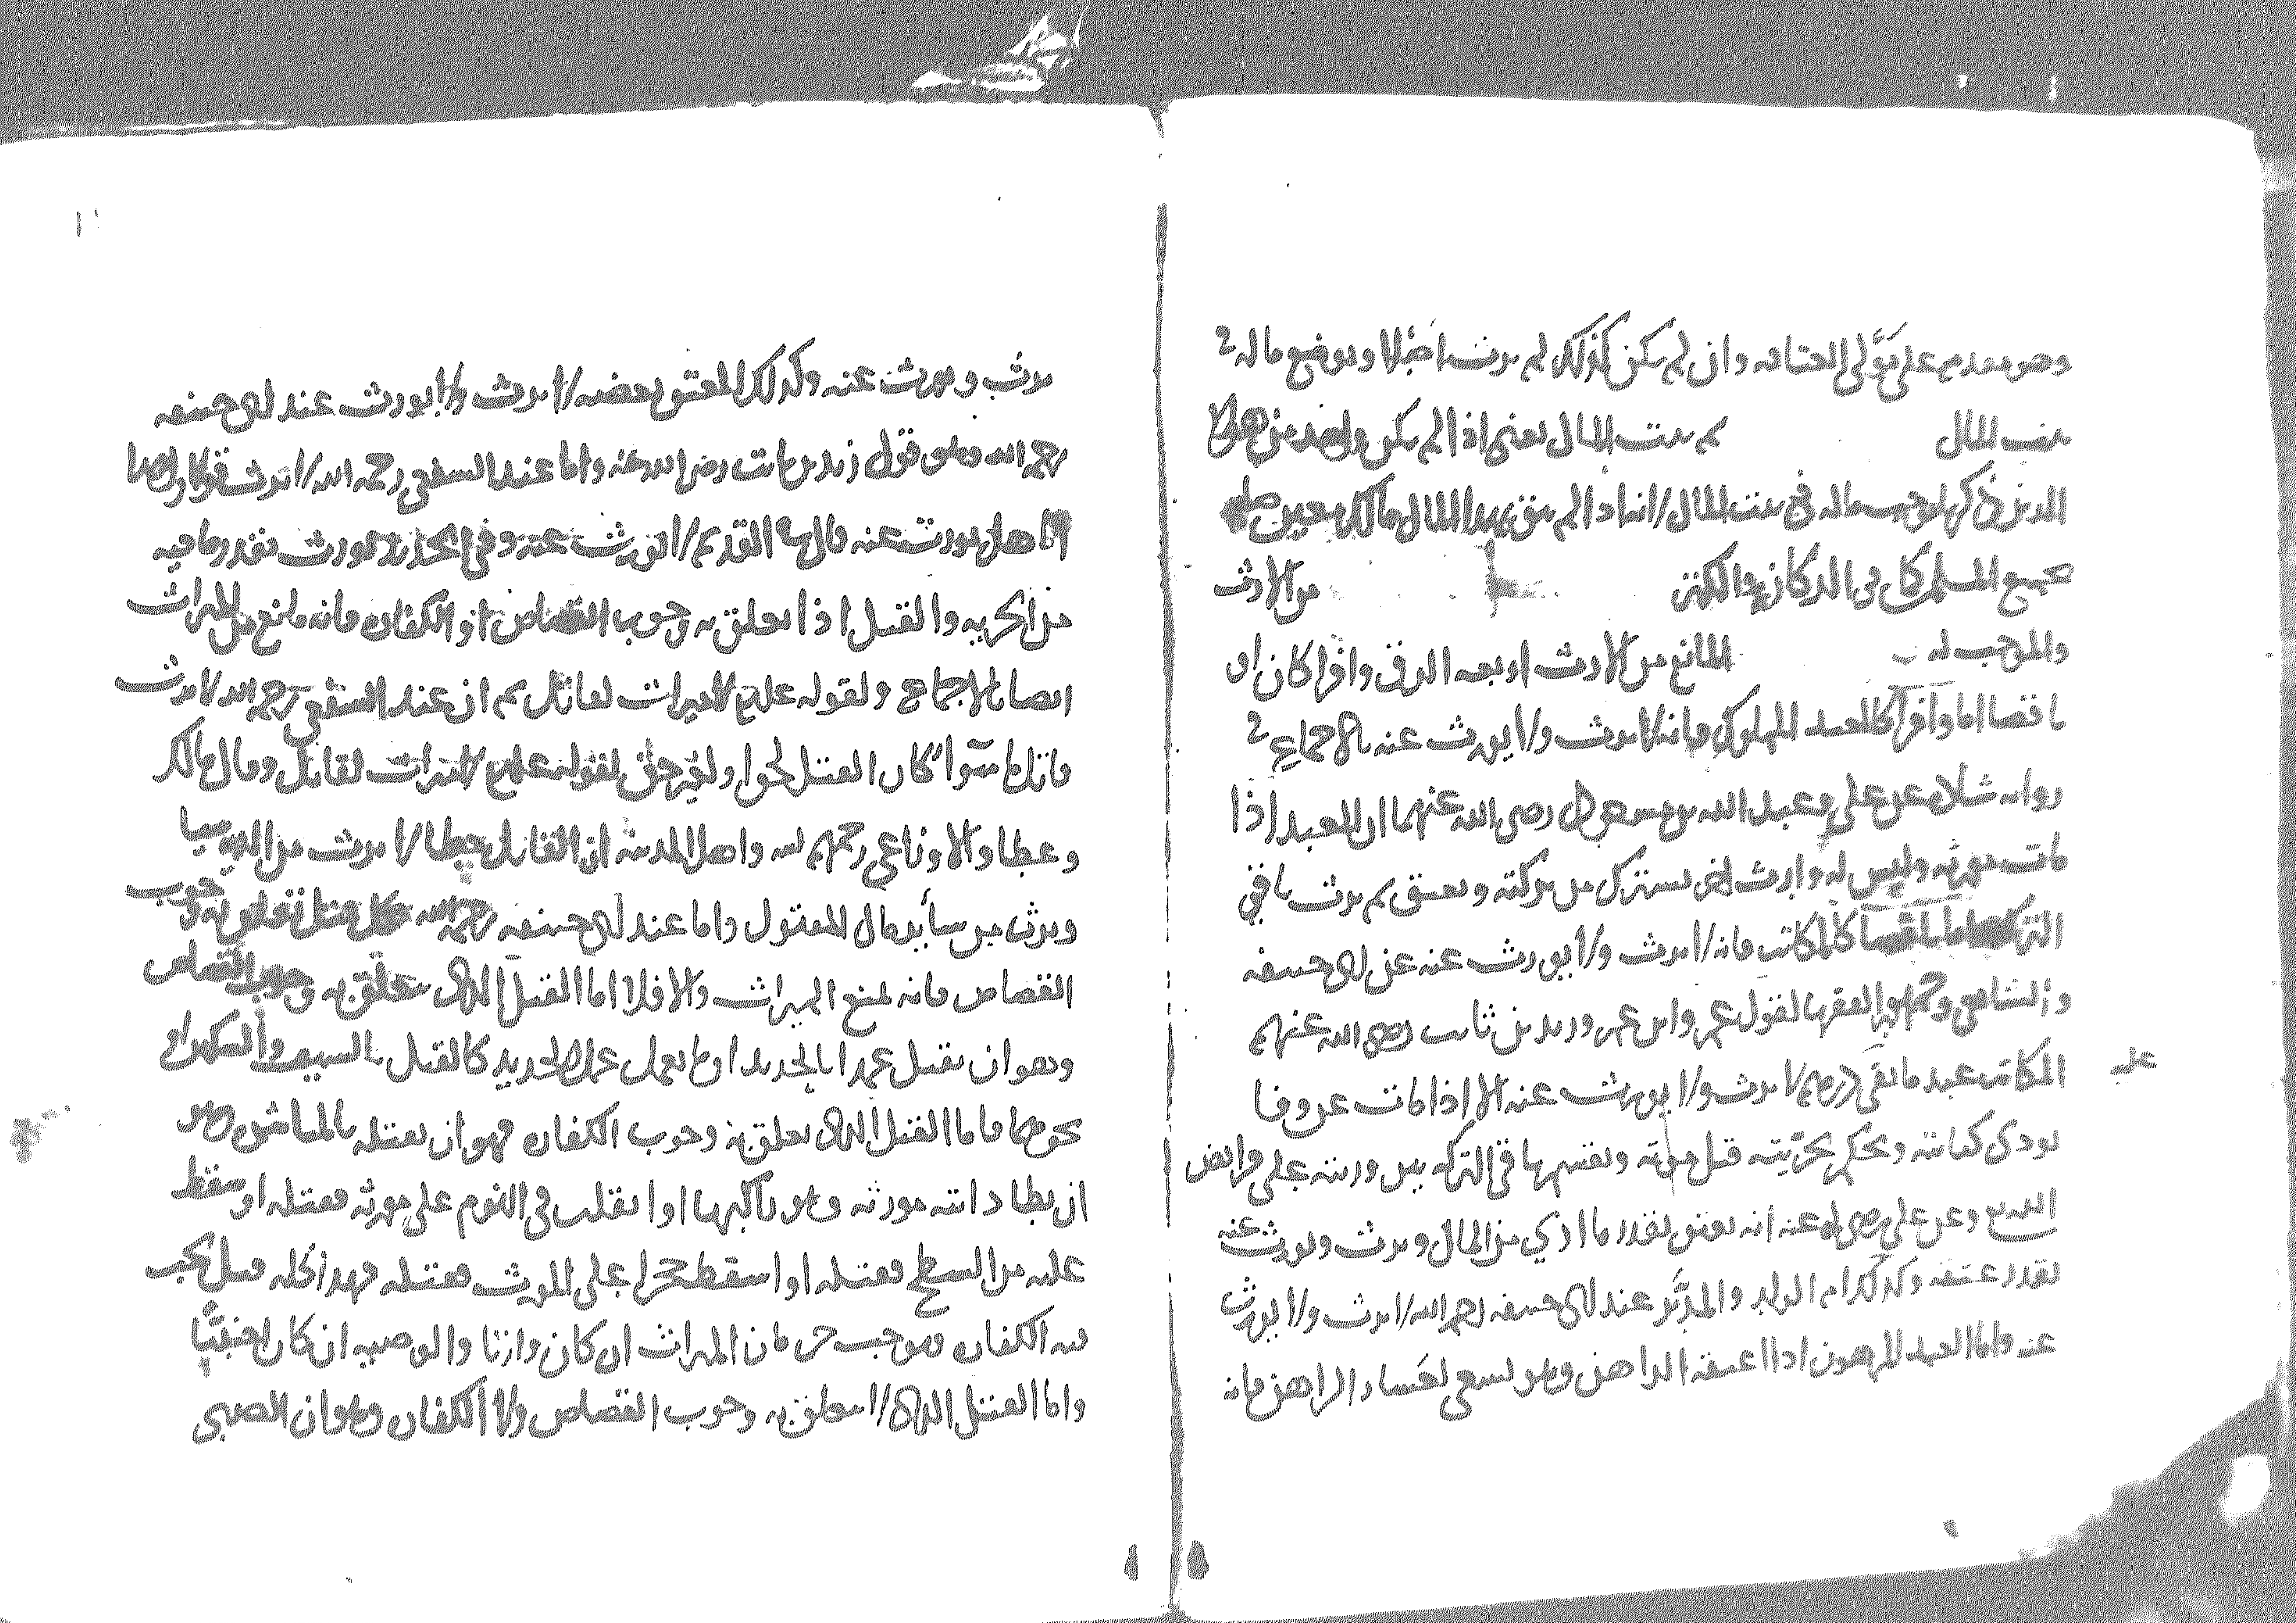 وهو مقدم على مولى العتاقه وان لم يكن كذلك لم يرث اصلا ويوضع ماله في
بيت المال ثم بيت المال يعني اذا لم يكن واحد من هولا
الذين ذكرنا يوجب ماله في بيت المال لانه اذا لم يبق لهذا المال مالك معين
جميع المسلمين كما في الركاز والكنز من الارث
والموجب له المانع من الارث اربعه الرق وافرا كان او
ناقصا اما وافرا كالعبد المملوك فانه لا يرث ولا يورث عنه بالاجماع في
روايه عن علي وعبد الله بن مسعود رضي الله عنهما ان العبد اذا
مات مورثه وليس له وارث اخر يشترى من تركته ويعتق ثم يرث باقي
التركه اما ناقصا كالمكاتب فانه لا يرث ولا يورث عنه عن ابي حنيفه
والشافعي وجمهور الفقها لقول عمر وابن عمر وزيد بن ثابت رضي الله عنهم
المكاتب عبد ما بقي عليه درهم لا يرث ولا يورث عنه الا اذا مات عن وفا
يودى كتابته ويحكم بحريته قبل موته ويقسم ما في التركه بين ورثته على فرايض
الله تع وعن علي رضي الله عنه انه يعتق بقدر ما ادي من المال ويرث ويورث عنه
بقدر عتقه وكذلك ام الولد والمدبر عند ابي حنيفه رحمه الله لا يرث ولا يورث
عنه واما العبد المرهون اذا اعتقه الراهن وهو يسعى لعسار الراهن فانه
يرث ويورث عنه وكذلك المعتق بعضه لا يرث ولا يورث عند ابي حنيفه
رحمه الله وهو قول زيد بن ثابت رضي الله عنه واما عند الشفعي رحمه الله لا يرث قولا واحدا
اما هل يورث عنه قال في القديم لا يورث عنه وفي الجديد يورث بقدر ما فيه
من الحريه والقتل اذا تعلق به وجوب القصاص او الكفاره فانه مانع من الميراث
ايضا بالاجماع ولقوله عليع لا ميراث لقاتل ثم ان عند الشفعي رحمه الله لا يرث
قاتل ما سوا كان القتل لحق او لغير حق لقوله عليع لا ميراث لقاتل وقال مالك
وعطا والاوزاعي رحمهم الله واهل المدينه ان القاتل خطا لا يرث من الديه شيا
ويرث من ساير مال المقتول واما عند ابي حنيفه رحمه الله كل قتل تعلق به وجوب
القصاص فانه يمنع الميراث والا فلا اما القتل الذى يتعلق به وجوب القصاص
وهو ان يقتل عمدا بالحديد او ما يعمل عمل الحديد كالقتل بالسيف والسكين او
نحوهما فاما القتل الذى يتعلق به وجوب الكفاره فهو ان يقتله بالمباشره وهو
ان يطا دابته مورثه وهو راكبها او انقلب في النوم على مورثه فقتله او سقط
عليه من السطح فقتله او اسقط حجرا على المورث فقتله فهذا كله قتل يجب
فيه الكفاره فيوجب حرمان الميراث ان كان وارثا والوصيه ان كان اجنبيا
واما القتل الذى لا يتعلق به وجوب القصاص ولا الكفاره وهو ان الصبي